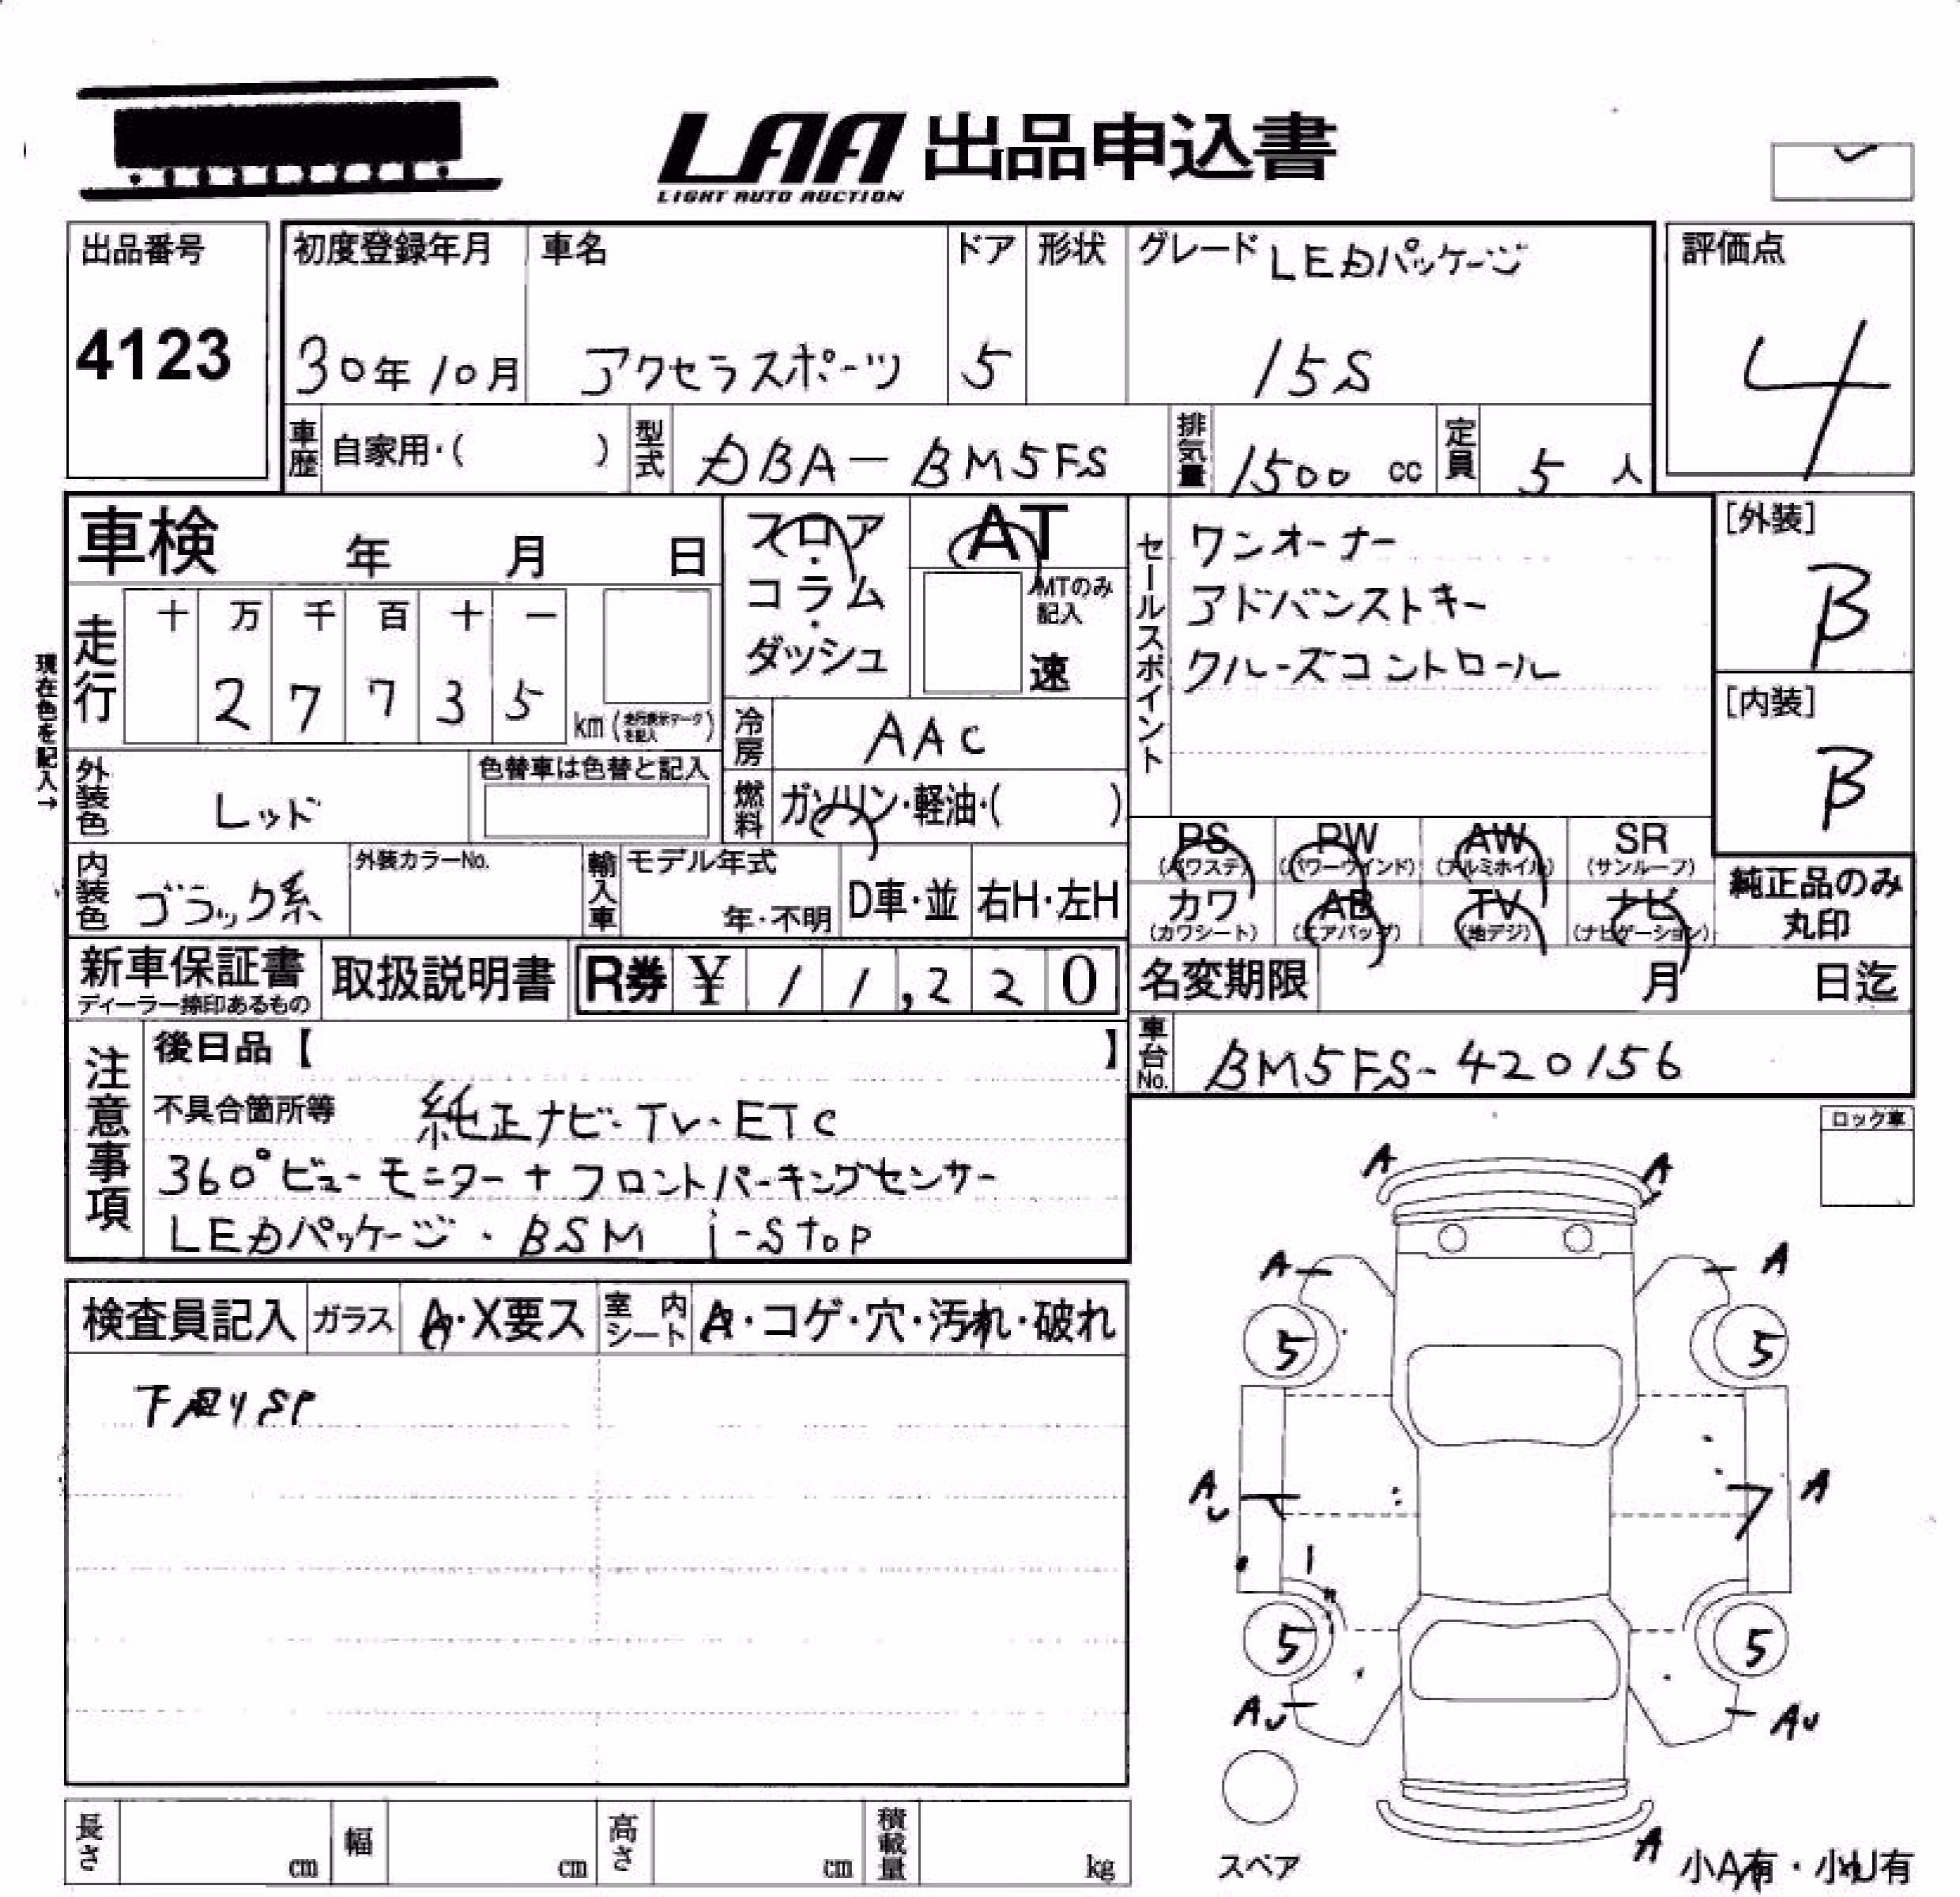 LAA 出品申込書
LIGHT AUTO AUCTION
出品番号
4123
初度登録年月
30年10月
車名
アクセラスポーツ
ドア
5
形状
グレード LEDパッケージ
15S
評価点
4
車歴 自家用・( )
型式 DBA-BM5FS
排気量 1500 cc
定員 5 人
車検 年 月 日
走行
十 万 千 百 十 一
2 7 7 3 5
km (走行表示マークを記入)
現在色を記入→
外装色 レッド
色替車は色替と記入
内装色 ブラック系
外装カラーNo.
輸入車 モデル年式
年・不明
D車・並
右H・左H
フロア
・
コラム
・
ダッシュ
AT
MTのみ
記入
速
冷房 AAC
燃料 ガソリン・軽油・( )
セールスポイント
ワンオーナー
アドバンストキー
クルーズコントロール
[外装]
B
[内装]
B
PS PW AW SR
(パワステ) (パワーウインド) (アルミホイル) (サンルーフ)
カワ AB TV ナビ
(カワシート) (エアバッグ) (地デジ) (ナビゲーション)
純正品のみ
丸印
新車保証書
ディーラー捺印あるもの
取扱説明書
R券 ¥ 1 1 , 2 2 0
名変期限 月 日迄
車台No. BM5FS-420156
注意事項
後日品【 】
不具合箇所等 純正ナビ・TV・ETC
360°ビューモニター+フロントパーキングセンサー
LEDパッケージ・BSM i-stop
ロック車
検査員記入
ガラス A・X要ス
室内シート A・コゲ・穴・汚れ・破れ
下廻りSP
A A
A A
5 5
AU A
5 5
AU AU
スペア
A
小A有・小U有
長さ cm
幅 cm
高さ cm
積載量 kg